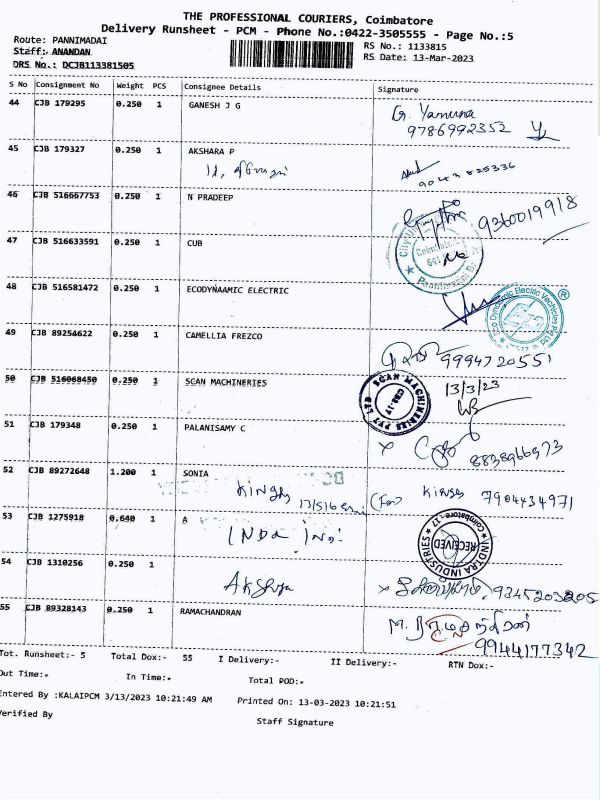 THE PROFESSIONAL COURIERS, Coimbatore
Delivery Runsheet - PCM - Phone No.:0422-3505555 - Page No.:5
Route: PANNIMADAI
RS No.: 1133815
Staff: ANANDAN
RS Date: 13-Mar-2023
DRS No.: DCJB113381505
S No Consignment No Weight PCS Consignee Details Signature
44 CJB 179295 0.250 1 GANESH J G
G. Yamuna
9786992352
45 CJB 179327 0.250 1 AKSHARA P
46 CJB 516667753 0.250 1 N PRADEEP
9360019918
47 CJB 516633591 0.250 1 CUB
Coimbatore
48 CJB 516581472 0.250 1 ECODYNAAMIC ELECTRIC
49 CJB 89254622 0.250 1 CAMELLIA FREZCO
9994720551
50 CJB 516068450 0.250 1 SCAN MACHINERIES
SCAN MACHINERIES PVT LTD
CBE-17
13/3/23
51 CJB 179348 0.250 1 PALANISAMY C
8838966973
52 CJB 89272648 1.200 1 SONIA
7904434971
53 CJB 1275918 0.640 1 A
INDRA INDUSTRIES
Coimbatore - 17
RECEIVED
54 CJB 1310256 0.250 1
Akshya
9345203205
55 CJB 89328143 0.250 1 RAMACHANDRAN
M. ராமச்சந்திரன்
9944177342
Tot. Runsheet:- 5 Total Dox:- 55 I Delivery:- II Delivery:- RTN Dox:-
Out Time:- In Time:- Total POD:-
Entered By :KALAIPCM 3/13/2023 10:21:49 AM Printed On: 13-03-2023 10:21:51
Verified By
Staff Signature